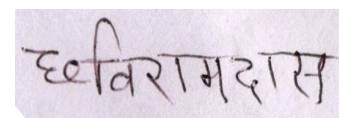 छविरामदास